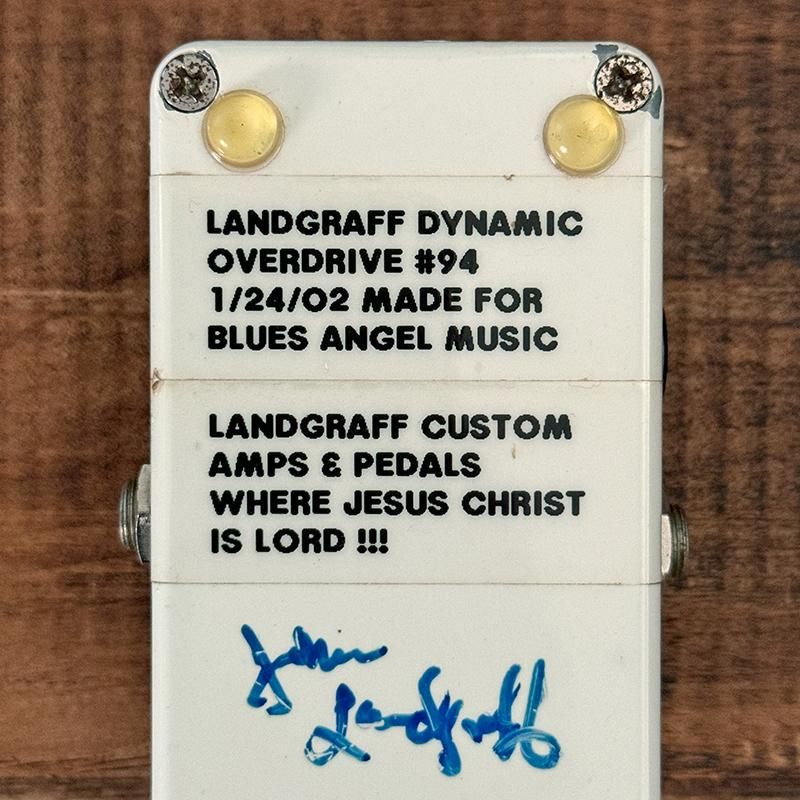 LANDGRAFF DYNAMIC
OVERDRIVE #94
1/24/02 MADE FOR
BLUES ANGEL MUSIC
LANDGRAFF CUSTOM
AMPS & PEDALS
WHERE JESUS CHRIST
IS LORD !!!
John
Landgraff